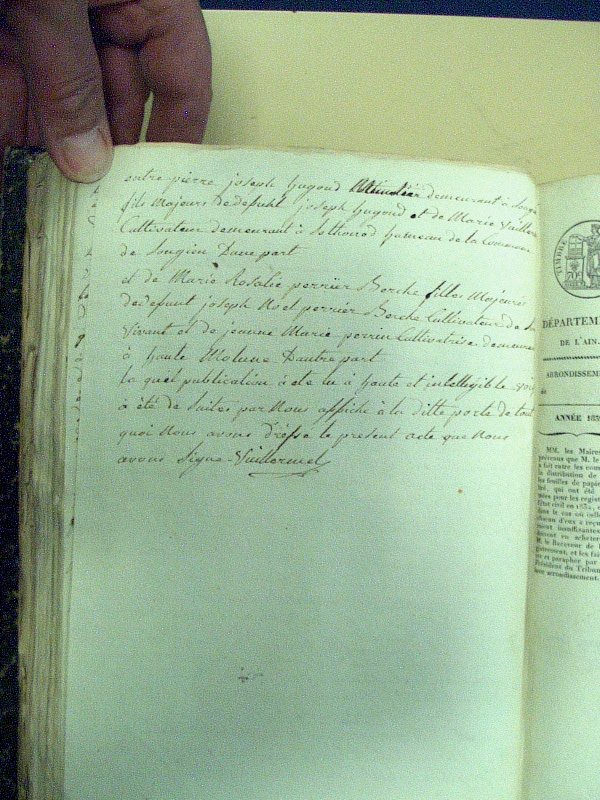 entre pierre joseph hugond Meunier demeurant à Songi
fils Majeurs de defunt joseph hugond et de Marie Vuiller
Cultivateur demeurant à Sothonod hameau de la Commune
de Songieu Dune part
et de Marie Rosalie perrier Borche filles Majeures
de defunt joseph Noel perrier Borche Cultivateur de Son
Vivant et de jeanne Marie perrin Cultivatrise demeurant
à haute Molune Dautre part
la quel publication à ete lu à haute et intellegible voix
à été de suites par Nous affiche à la ditte porte de tout
quoi Nous avons dresse le present acte que Nous
avons Signe Vuillermet
TIMBRE
DÉPARTEM
DE L'AIN.
ARRONDISSEM
de
ANNÉE 183
MM. les Maires
prévenus que M. le
a fait entre les com
a distribution de
les feuilles de papie
bré, qui ont été
nées pour les regist
l'état civil en 1832,
dans le cas où celle
chacun d'eux a reçu
raient insuffisantes
devront en acheter
M. le Receveur de l'
gistrement, et les fai
ter et parapher par
Président du Tribun
leur arrondissement.